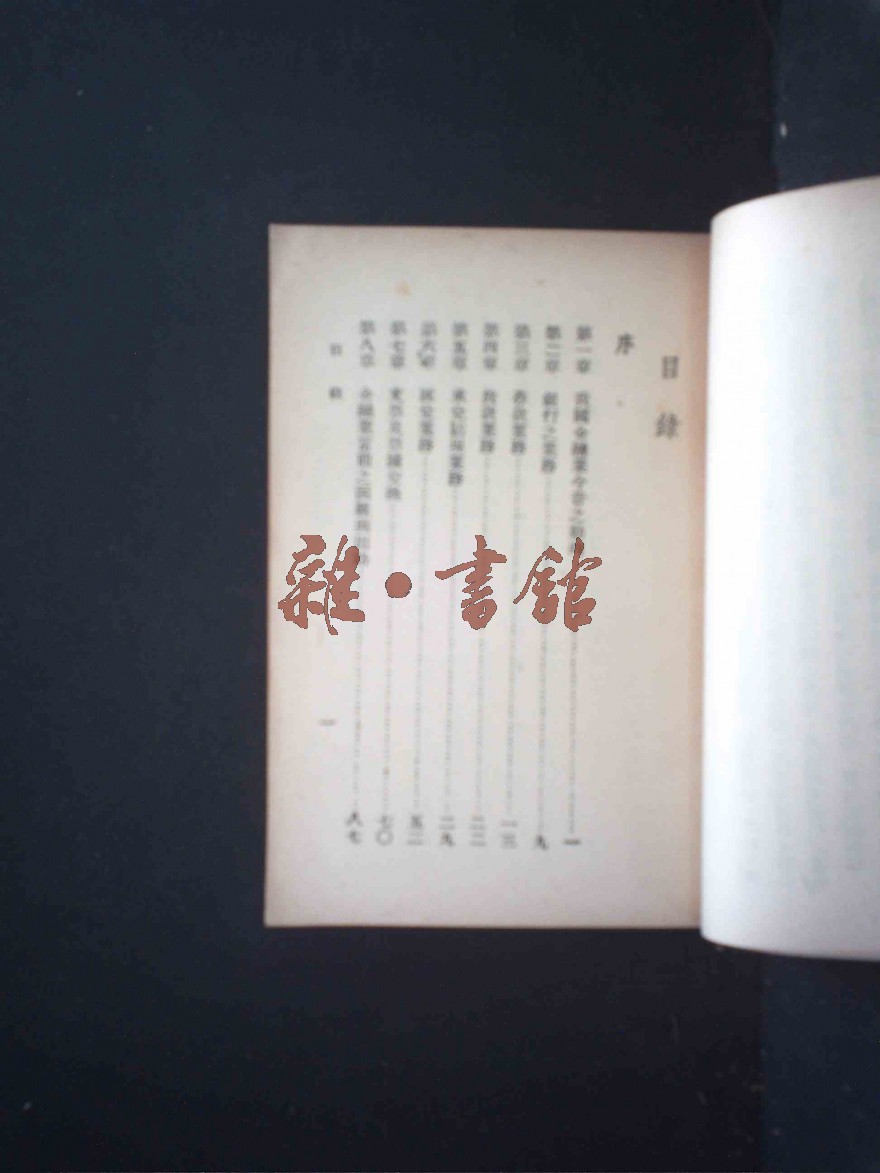 目錄
序
第一章 我國金融業今昔之 一
第二章 銀行之業務 九
第三章 存款業務 一三
第四章 放款業務 二二
第五章 業務 二九
第六章 匯兌業務 五二
第七章 七〇
第八章 金融業 之 八七
目錄
一
雜·書館